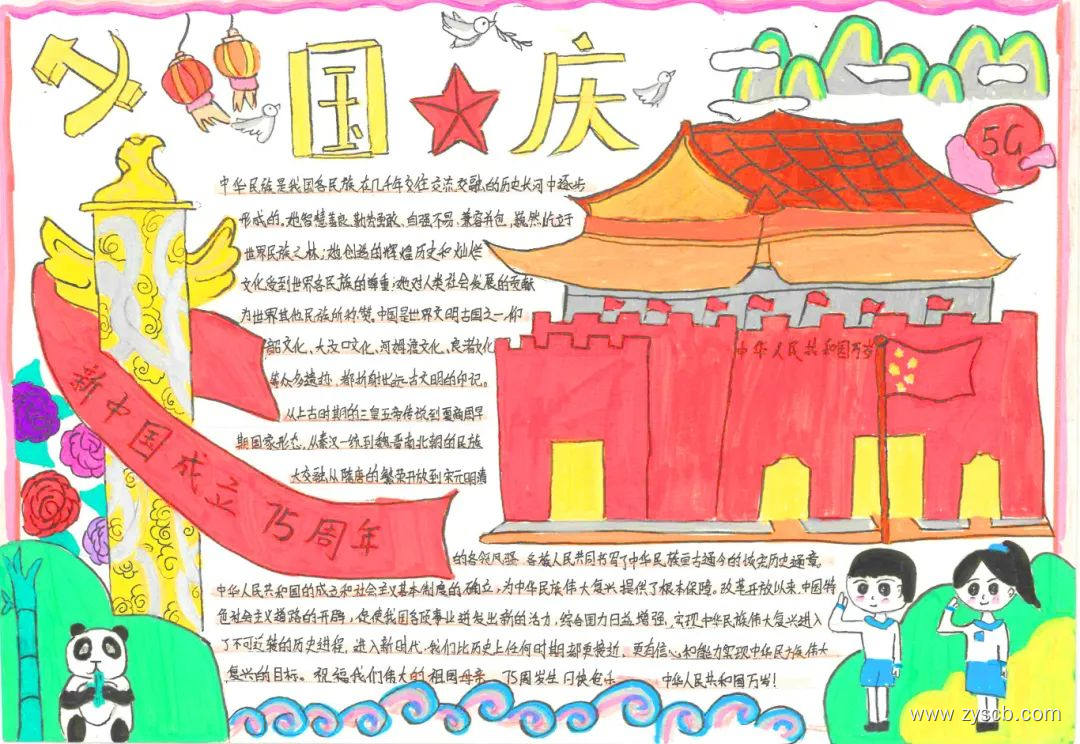 国庆
5G
中华民族是我国各民族在几千年交往交流交融的历史长河中逐步
形成的。她智慧善良、勤劳勇敢、自强不息、兼容并包,巍然屹立于
世界民族之林;她创造的辉煌历史和灿烂
文化受到世界各民族的尊重;她对人类社会发展的贡献
为世界其他民族所称赞。中国是世界文明古国之一,仰
韶文化、大汶口文化、河姆渡文化、良渚文化
等众多遗迹,都折射出远古文明的印记。
从上古时期的三皇五帝传说到夏商周早
期国家形态,从秦汉一统到魏晋南北朝的民族
大交融,从隋唐的繁荣开放到宋元明清
的各领风骚,各族人民共同书写了中华民族亘古通今的恢宏历史通章。
中华人民共和国的成立和社会主义基本制度的确立,为中华民族伟大复兴提供了根本保障。改革开放以来,中国特
色社会主义道路的开辟,促使我国各项事业迸发出新的活力,综合国力日益增强,实现中华民族伟大复兴进入
了不可逆转的历史进程。进入新时代,我们比历史上任何时期都更接近、更有信心和能力实现中华民族伟大
复兴的目标。祝福我们伟大的祖国母亲 75周岁生日快乐 中华人民共和国万岁!
新中国成立75周年
中华人民共和国万岁
www.zyscb.com